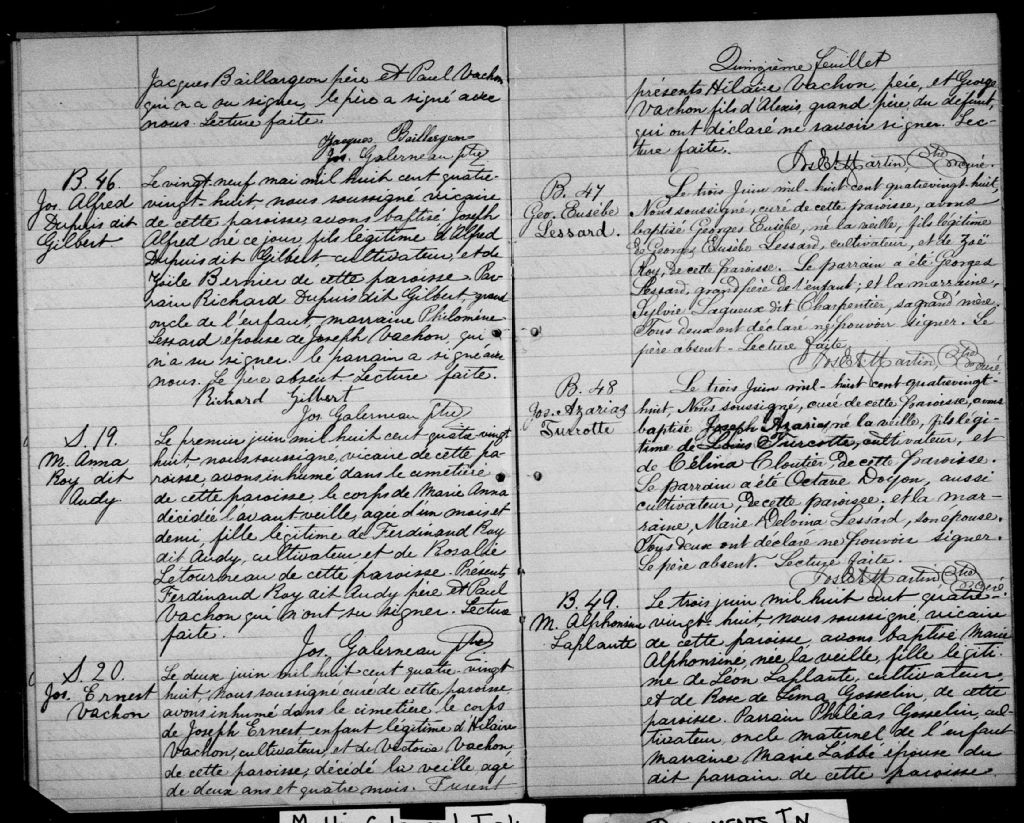 Jacques Baillargeon père et Paul Vachon
qui n'a su signer, le père a signé avec
nous. Lecture faite.
Jacques Baillargeon
Jos. Galerneau ptre
B. 46.
Jos. Alfred
Dupuis dit
Gilbert
Le vingt-neuf mai mil huit cent quatre
vingt-huit, nous soussigné vicaire
de cette paroisse avons baptisé Joseph
Alfred né ce jour, fils légitime d'Alfred
Dupuis dit Gilbert cultivateur, et de
Zoïle Bernier de cette paroisse. Par-
rain Richard Dupuis dit Gilbert, grand
oncle de l'enfant, marraine Philomène
Lessard épouse de Joseph Vachon, qui
n'a su signer. le parrain a signé avec
nous. Le père absent. Lecture faite.
Richard Gilbert
Jos. Galerneau ptre
S. 19.
M. Anna
Roy dit
Audy
Le premier juin mil huit cent quatre vingt
huit, nous soussigné, vicaire de cette pa-
roisse, avons inhumé dans le cimetière
de cette paroisse, le corps de Marie Anna
décédée l'avant veille, agée d'un mois et
demi, fille légitime de Ferdinand Roy
dit Audy, cultivateur, et de Rosalie
Letourneau de cette paroisse. Présents
Ferdinand Roy dit Audy père et Paul
Vachon qui n'ont su signer. Lecture
faite.
Jos. Galerneau ptre
S. 20.
Jos. Ernest
Vachon
Le deux juin mil huit cent quatre-vingt
huit, Nous soussigné curé de cette paroisse
avons inhumé dans le cimetière, le corps
de Joseph Ernest, enfant légitime d'Hilaire
Vachon, cultivateur et de Victoria Vachon,
de cette paroisse, décédé la veille, agé
de deux ans et quatre mois. Furent
Quinzième feuillet
présents Hilaire Vachon, père, et George
Vachon fils d'Alexis, grand père, du défunt,
qui ont déclaré ne savoir signer. Lec-
ture faite.
Jos. E. Martin, Ptre Curé.
B. 47
Geo. Eusèbe
Lessard.
Le trois Juin mil-huit cent quatrevingt-huit,
Nous soussigné, curé de cette paroisse, avons
baptisé Georges Eusèbe, né la veille, fils légitime
de Georges Eusèbe Lessard, cultivateur, et de Zoë
Roy, de cette paroisse. Le parrain a été Georges
Lessard, grand père de l'enfant; et la marraine,
Sylvie Lagueux dit Charpentier, sa grand'mère.
Tous deux ont déclaré ne pouvoir signer. Le
père absent. Lecture faite.
Jos. E. Martin, Ptre Curé
B. 48
Jos. Azarias
Turcotte
Le trois Juin mil-huit cent quatrevingt-
huit, Nous soussigné, curé de cette paroisse, avons
baptisé Joseph Azarias, né la veille, fils légi-
time de Louis Turcotte, cultivateur, et
de Célina Cloutier, de cette paroisse.
Le parrain a été Octave Doyon, aussi
cultivateur, de cette paroisse, et la mar-
raine, Marie Delvina Lessard, son épouse.
Tous deux ont déclaré ne pouvoir signer.
Le père absent. Lecture faite.
Jos. E. Martin, Ptre Curé.
B. 49.
M. Alphonsine
Laplante
Le trois juin mil huit cent quatre-
vingt-huit, nous soussigné, vicaire
de cette paroisse, avons baptisé Marie
Alphonsine, née la veille, fille légiti-
me de Léon Laplante, cultivateur
et de Rose de Lima Gosselin, de cette
paroisse. Parrain Philéas Gosselin, cul-
tivateur, oncle maternel de l'enfant
marraine Marie Labbé épouse du
dit parrain de cette paroisse